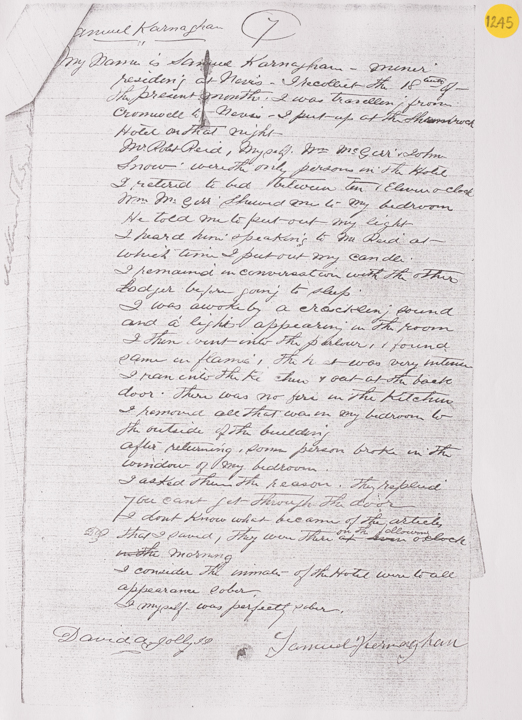 1245
Samuel Karnaghan
7
My Name is Samuel Karnaghan - miner
residing at Nevis - I recollect the 18th of
the present month. I was travelling from
Cromwell to Nevis - I put up at the Shamrock
Hotel on that night
Mr Robt Reid, Myself. Wm McGirr John
Snow were the only persons in the Hotel
I retired to bed between ten & Eleven oClock
Wm McGirr Shewed me to my bedroom
He told me to put out my light
I heard him speaking to Mr Reid at
which time I put out my candle.
I remained in conversation with the other
Lodger before going to sleep.
I was awoke by a crackling sound
and a light appearing in the room
I then went into the parlour, & found
same in flames, the heat was very intense
I ran into the Kitchen & out at the back
door. There was no fire in the Kitchen
I removed all that was in my bedroom to
the outside of the building
after returning, some person broke in the
window of my bedroom.
I asked them the reason. They replied
you cant get through the door
I dont Know what became of the articles
that I saved, they were there on the following
at oClock
in the morning
I consider the inmates of the Hotel were to all
appearance sober.
I myself was perfectly sober.
David A Jolly
Samuel Kernaghan